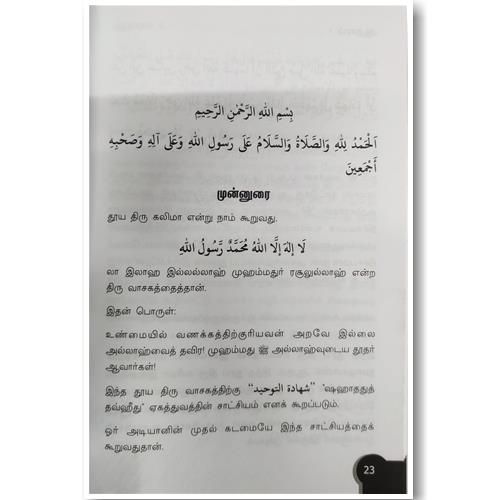 بِسْمِ اللهِ الرَّحْمٰنِ الرَّحِيْمِ
اَلْحَمْدُ لِلّٰهِ وَالصَّلَاةُ وَالسَّلَامُ عَلَى رَسُولِ اللهِ وَعَلَى آلِهِ وَصَحْبِهِ
أَجْمَعِينَ
முன்னுரை
தூய திரு கலிமா என்று நாம் கூறுவது,
لَا إِلٰهَ إِلَّا اللهُ مُحَمَّدٌ رَّسُولُ اللهِ
லா இலாஹ இல்லல்லாஹ் முஹம்மதுர் ரசூலுல்லாஹ் என்ற
திரு வாசகத்தைத்தான்.
இதன் பொருள்:
உண்மையில் வணக்கத்திற்குரியவன் அறவே இல்லை
அல்லாஹ்வைத் தவிர! முஹம்மது ﷺ அல்லாஹ்வுடைய தூதர்
ஆவார்கள்!
இந்த தூய திரு வாசகத்திற்கு "شهادة التوحيد" 'ஷஹாததுத்
தவ்ஹீது' ஏகத்துவத்தின் சாட்சியம் எனக் கூறப்படும்.
ஓர் அடியானின் முதல் கடமையே இந்த சாட்சியத்தைக்
கூறுவதுதான்.
23